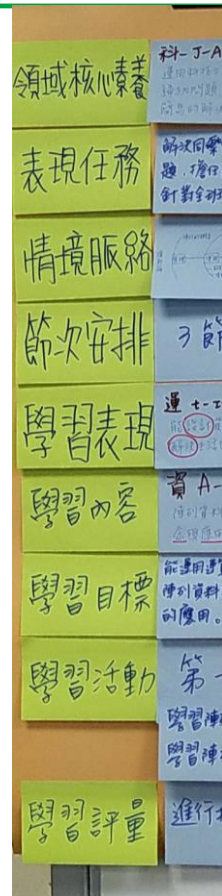 領域核心素養
科-J-A
表現任務
解決同
題，擔任
針對全
情境脈絡
節次安排
3節
學習表現
運t-
能
學習內容
資A-
陣列資料
學習目標
能運用運
陣列資料
的應用。
學習活動
第一
學習陣
學習陣
學習評量
進行